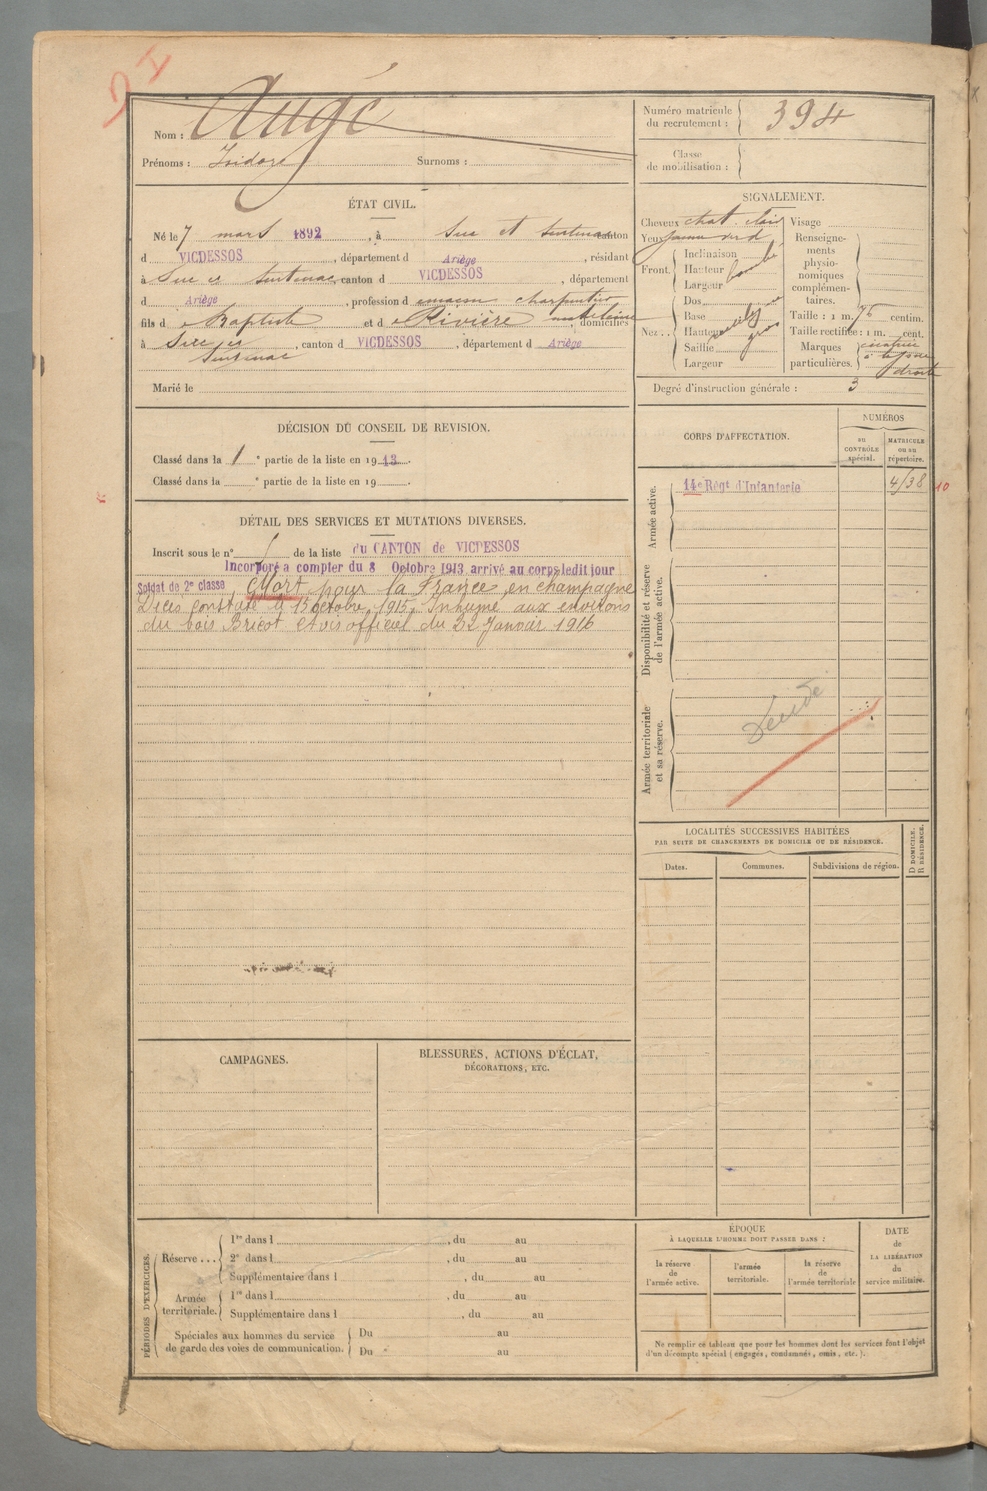 D I
Nom : Augé
Prénoms : Isidore Surnoms :
Numéro matricule du recrutement : 394
Classe de mobilisation :
ÉTAT CIVIL.
Né le 7 mars 1892, à Suc et Sentenac canton
d VICDESSOS, département d Ariège, résidant
à Suc et Sentenac canton d VICDESSOS, département
d Ariège, profession d maçon charpentier
fils d e Baptiste et d e Rivière madeleine, domiciliés
à Suc et Sentenac, canton d VICDESSOS, département d Ariège
Marié le
SIGNALEMENT.
Cheveux chat. clair
Yeux jaune verd
Front. Inclinaison
Hauteur
Largeur
Nez. Dos
Base
Hauteur
Saillie
Largeur
Visage
Renseignements physionomiques complémentaires.
Taille : 1 m. 76 centim.
Taille rectifiée : 1 m. cent.
Marques particulières.
à la joue droite
Degré d'instruction générale : 3
DÉCISION DU CONSEIL DE REVISION.
Classé dans la 1 e partie de la liste en 1913.
Classé dans la e partie de la liste en 19 .
CORPS D'AFFECTATION.
NUMÉROS
au CONTRÔLE spécial.
MATRICULE ou au répertoire.
Armée active.
14e Régt d'Infanterie 4138 10
Disponibilité et réserve de l'armée active.
Armée territoriale et sa réserve.
DÉTAIL DES SERVICES ET MUTATIONS DIVERSES.
Inscrit sous le n° de la liste du CANTON de VICDESSOS
Incorporé a compter du 8 Octobre 1913 arrivé au corps ledit jour
Soldat de 2e classe Mort pour la France en champagne
Décès constaté le 15 octobre 1915. Inhumé aux environs
du bois Bricot. Avis officiel du 22 Janvier 1916
LOCALITÉS SUCCESSIVES HABITÉES
PAR SUITE DE CHANGEMENTS DE DOMICILE OU DE RÉSIDENCE.
Dates. Communes. Subdivisions de région. D DOMICILE. R RÉSIDENCE.
CAMPAGNES.
BLESSURES, ACTIONS D'ÉCLAT,
DÉCORATIONS, ETC.
PÉRIODES D'EXERCICES.
Réserve ... 1re dans l , du au
2e dans l , du au
Supplémentaire dans l , du au
Armée territoriale. 1re dans l , du au
Supplémentaire dans l , du au
Spéciales aux hommes du service de garde des voies de communication. Du au
Du au
ÉPOQUE
À LAQUELLE L'HOMME DOIT PASSER DANS :
la réserve de l'armée active.
l'armée territoriale.
la réserve de l'armée territoriale
DATE de LA LIBÉRATION du service militaire.
Ne remplir ce tableau que pour les hommes dont les services font l'objet
d'un décompte spécial (engagés, condamnés, omis, etc.).